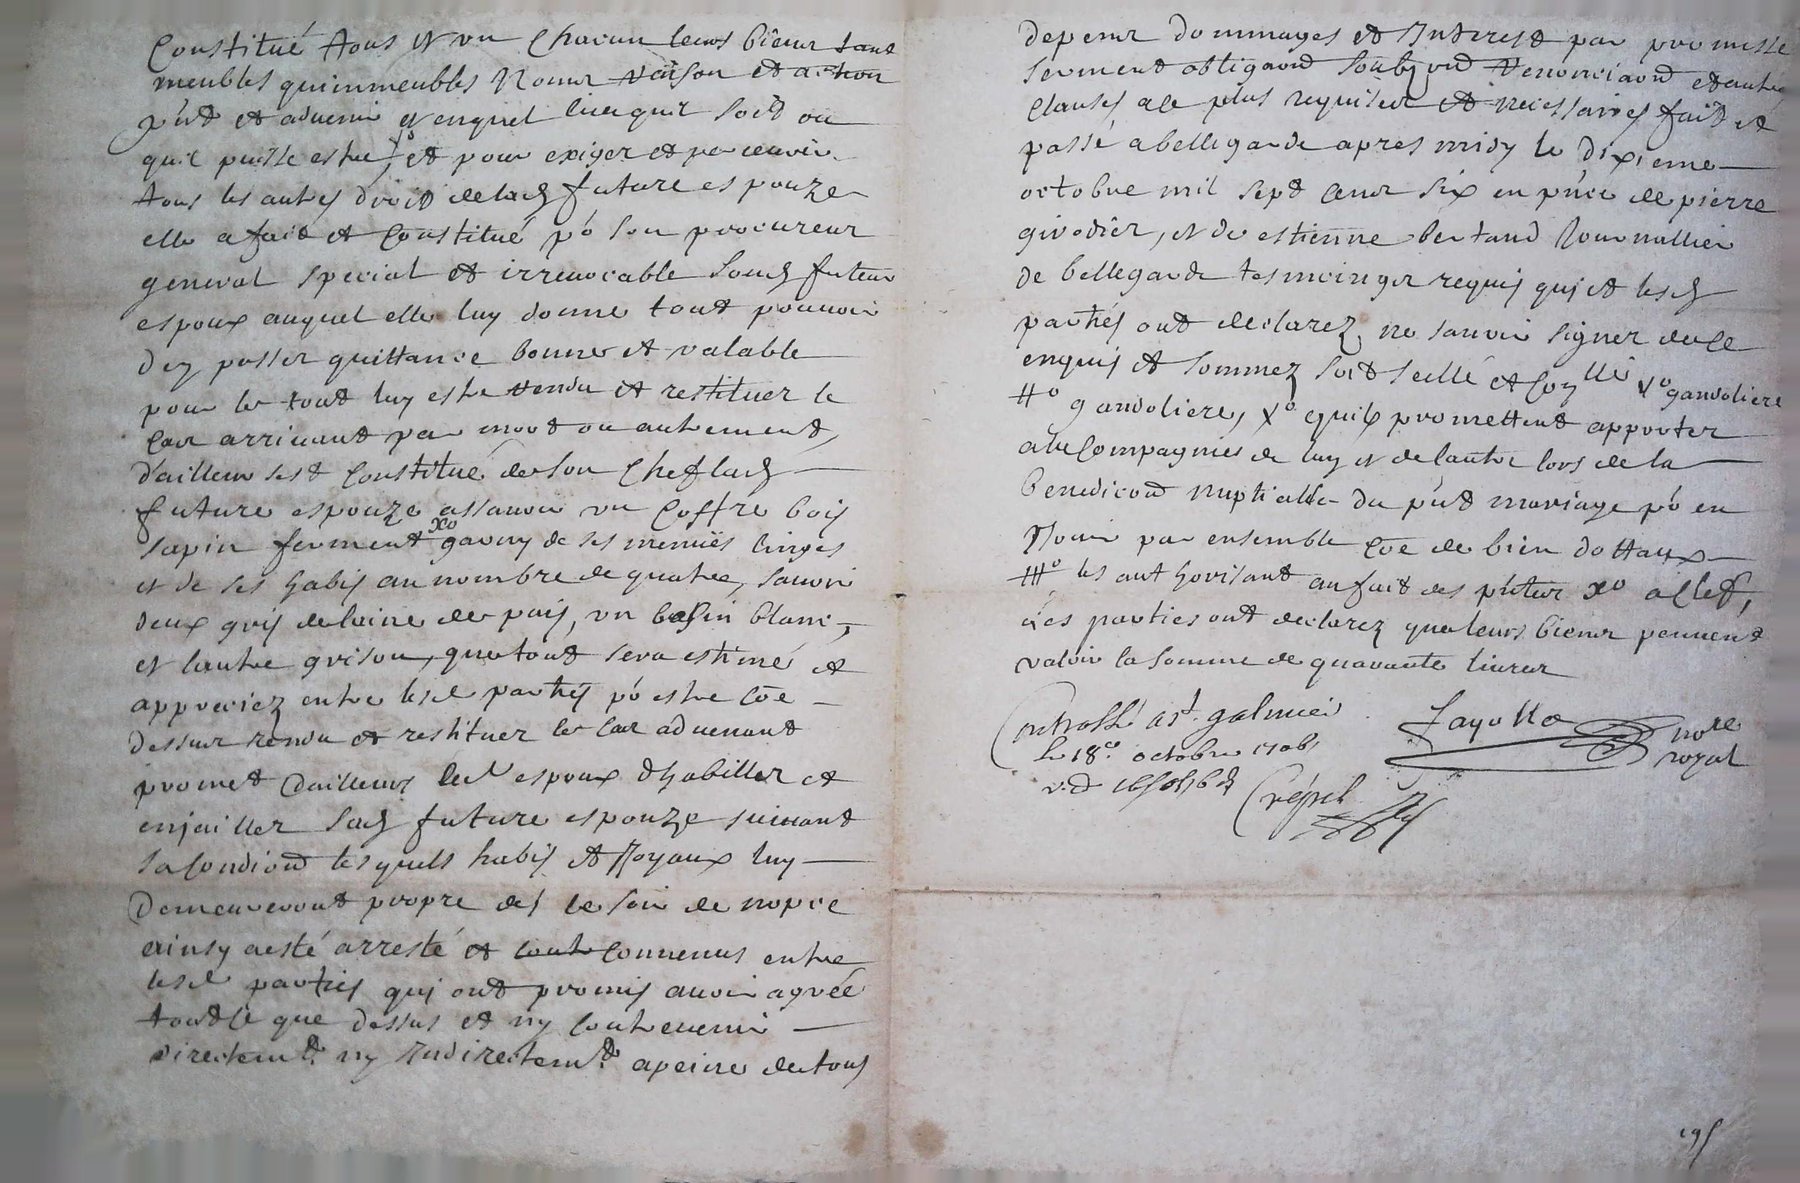 Constitué tous et un chacun leurs biens tant
meubles quimmeubles Noms raison et action
pnt et aduenir et enquel lieu quil soit ou
quil puisse estre, et pour exiger et perceuoir
tous les autres droit delad future espouze
elle a fait et constitué po son procureur
general special et irreuocable soud futeur
espoux auquel elle luy donne tout pouuoir
den passer quittance bonne et valable
pour le tout luy estre rendu et restituer le
cas arriuant par mort ou autrement,
d'ailleurs sest constitué de son chef lad
future espouze assauoir un coffre bois
sapin ferment xo garny de ses menues linges
et de ses habis au nombre de quatre, sauoir
deux gris de laine de pais, un basin blanc,
et lautre grison, que tout sera estimé et
appreciez entre lesd parties po estre coe
dessus rendu et restituer le cas aduenant
promet dailleurs led espoux dhabiller et
enjailler sad future espouze suiuant
sa condiond lesquels habis et Joyaux luy
demeureront propre des le soir de nopce
ainsy a esté arresté et conuenus entre
lesd parties qui ont promis auoir agréé
tout ce que dessus et ny contreuenir
directemt ny Indirectemt a peine de tous
depens dommages et Interest par promesse
serment obligaond soubzond renonciaond et autres
clauses a ce plus requises et necessaires fait et
passé a bellegarde apres midy le dixieme
octobre mil sept cens six en pnce de pierre
givodier, et de estienne bertand Journallier
de bellegarde tesmoings requis qui et lesd
parties ont declarez ne sauoir signer de ce
enquis et sommez soit scellé et conllé Vo gandoliere
Ho gandoliere, Vo quils promettent apporter
a la compagnies de luy et de lautre lors de la
benediond nuptialle du pnt mariage po en
Jouir par ensemble coe de bien dottaux
Ho les authorisant au fait des pntes xo a clef,
Les parties ont declarez que leurs biens peuuent
valoir la somme de quarante liures
Controllé a St. galmier
le 18e. octobre 1706
Jayotte
nore
royal
195